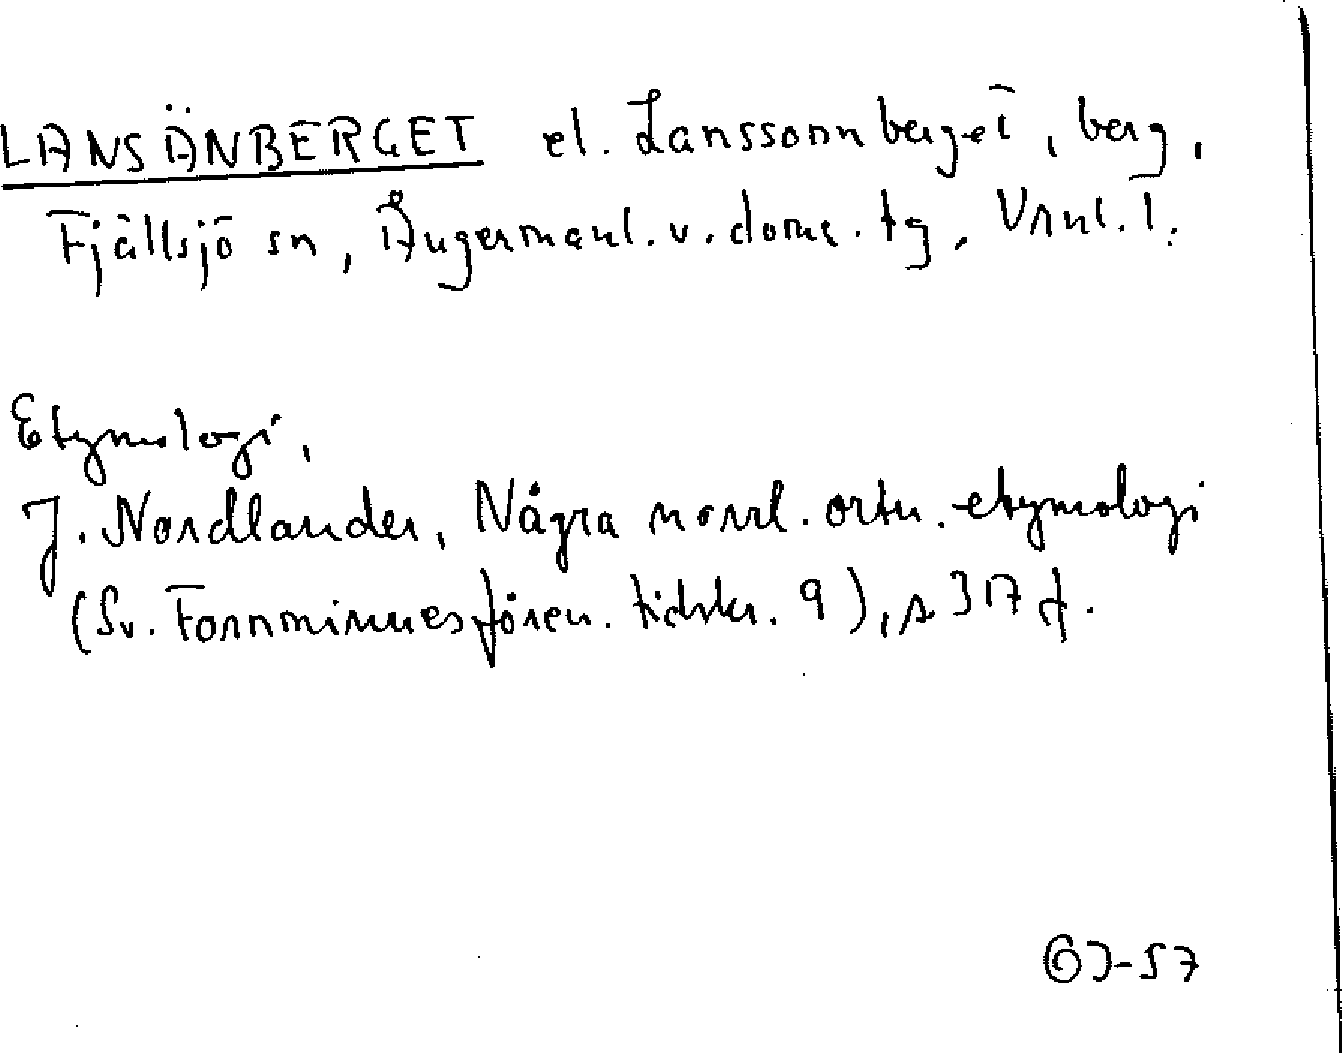 LANSÄNBERGET el. Lanssonnberget, berg,
Fjällsjö sn, Ångermanl. v. doms. tg, Vnnl. l.
Etymologi,
J. Nordlander, Några norrl. ortn. etymologi
(Sv. Fornminnesfören. tidskr. 9), s 317 f.
GJ-57